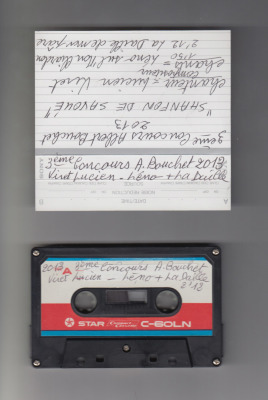 3ème Concours Albert Bouchet
2013
"SHANFON DE SAVOUÉ"
Chanteur = Lucien Viret
compositeur
chants = 1'50 Léno sul Mon Clardon
2'12 La Daille de mon père
3ème Concours A. Bouchet 2013
Viret Lucien - Léno + La Daille
DATE/TIME
2013 A 3ème Concours A. Bouchet
Viret Lucien - Léno + La Daille
2'12
STAR C-60LN